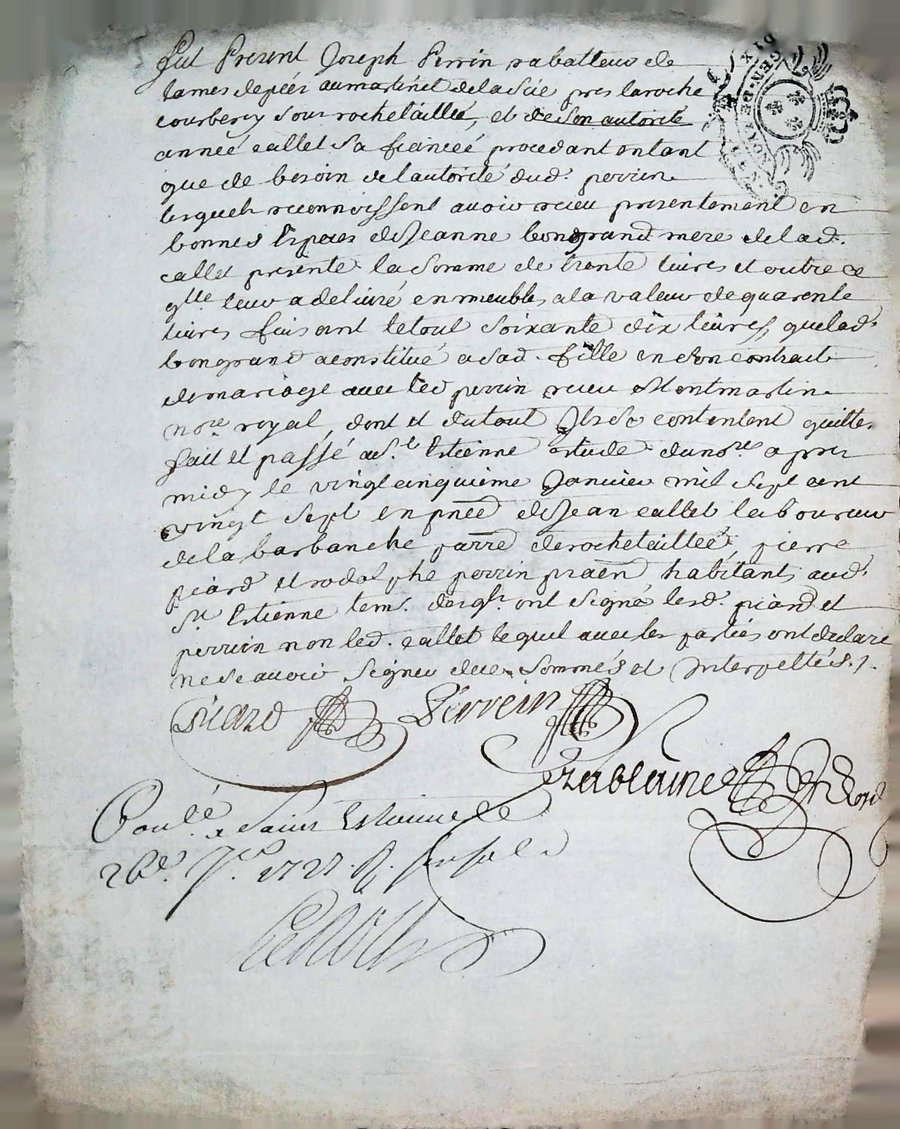 Fut Present Joseph Perrin rabatteur de
lames depéés au martinet de la Scie pres laroche
courberey sous rochetaillée, et de son autorité
annéé callet sa fianceé procedant ontant
que de besoin de lautorité dud. perrin
lesquels reconnoissent avoir receu presentement en
bonnes Especes de Jeanne bongrand mere de lad.
callet presente la somme de trente livres et outre ce
qlle leur a delivré en meubles a la valeur de quarente
livres faisant le tout soixante dix livres, que lad.
bongrand a constitué a sad. fille en son contract
de mariage avec led perrin receu Montmartin
nore royal, dont et du tout Ils se contentent quittes
fait et passé a St Estienne estude du nore apres
midy le vingtcinquieme Janvier mil Sept cent
vingt Sept en pnce de Jean callet laboureur
de la barbanche parre de rochetaillée, pierre
piard et rodolphe perrin habitants aud.
St Estienne tem. ont signé lesd. piard et
perrin non led. callet lequel avec les parties ont declaré
ne scavoir signer de ce sommés et Interpellés ./.
Piard Perrein
Controlé a Saint Estienne le
1727